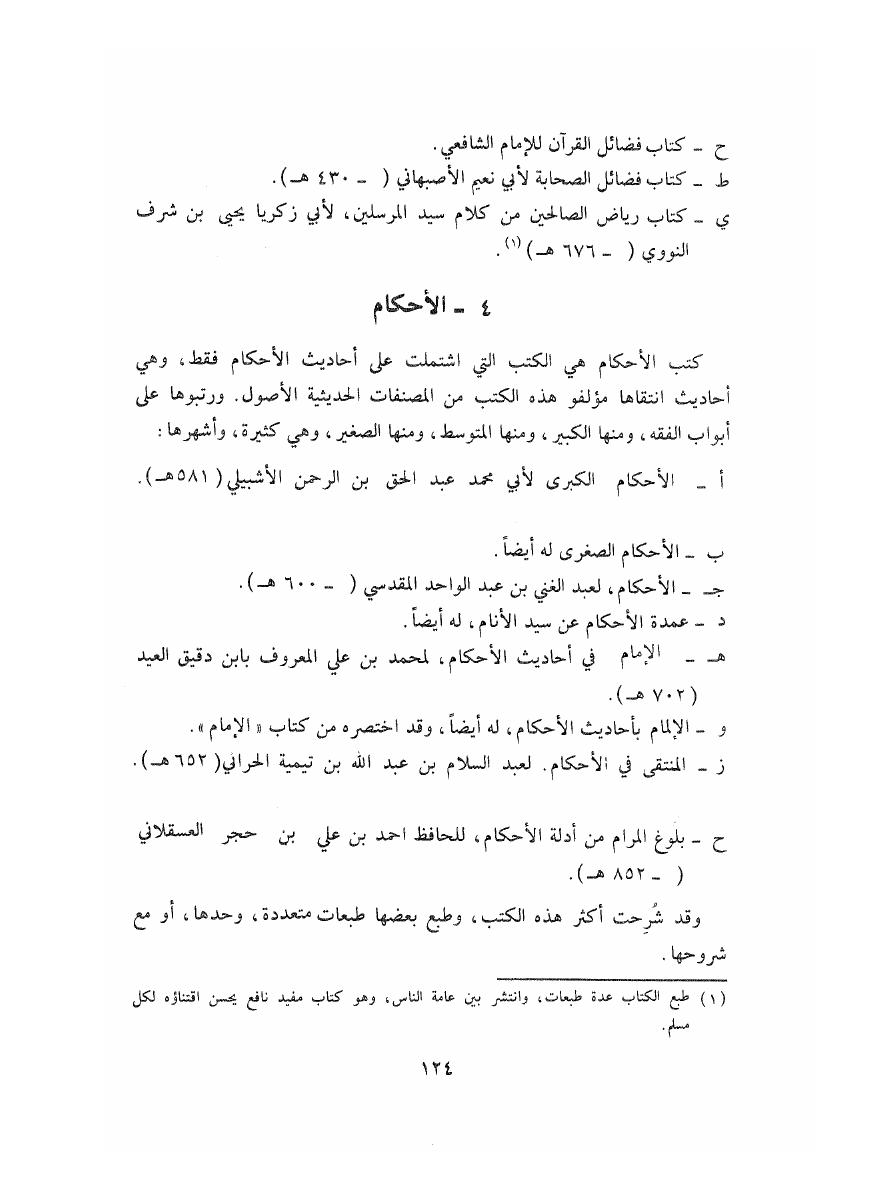 ح ـ كتاب فضائل القرآن للإمام الشافعي.
ط ـ كتاب فضائل الصحابة لأبي نعيم الأصبهاني ( ـ ٤٣٠ هـ).
ي ـ كتاب رياض الصالحين من كلام سيد المرسلين، لأبي زكريا يحيى بن شرف
النووي ( ـ ٦٧٦ هـ)(١).
٤ ـ الأحكام
كتب الأحكام هي الكتب التي اشتملت على أحاديث الأحكام فقط، وهي
أحاديث انتقاها مؤلفو هذه الكتب من المصنفات الحديثية الأصول. ورتبوها على
أبواب الفقه، ومنها الكبير، ومنها المتوسط، ومنها الصغير، وهي كثيرة، وأشهرها:
أ ـ الأحكام الكبرى لأبي محمد عبد الحق بن الرحمن الأشبيلي (٥٨١هـ).
ب ـ الأحكام الصغرى له أيضاً.
جـ ـ الأحكام، لعبد الغني بن عبد الواحد المقدسي ( ـ ٦٠٠ هـ).
د ـ عمدة الأحكام عن سيد الأنام، له أيضاً.
هـ ـ الإمام في أحاديث الأحكام، لمحمد بن علي المعروف بابن دقيق العيد
(٧٠٢ هـ).
و ـ الإلمام بأحاديث الأحكام، له أيضاً، وقد اختصره من كتاب «الإمام».
ز ـ المنتقى في الأحكام. لعبد السلام بن عبد الله بن تيمية الحراني(٦٥٢ هـ).
ح ـ بلوغ المرام من أدلة الأحكام، للحافظ احمد بن علي بن حجر العسقلاني
( ـ ٨٥٢ هـ).
وقد شُرِحت أكثر هذه الكتب، وطبع بعضها طبعات متعددة، وحدها، أو مع
شروحها.
(١) طبع الكتاب عدة طبعات، وانتشر بين عامة الناس، وهو كتاب مفيد نافع يحسن اقتناؤه لكل
مسلم.
١٢٤